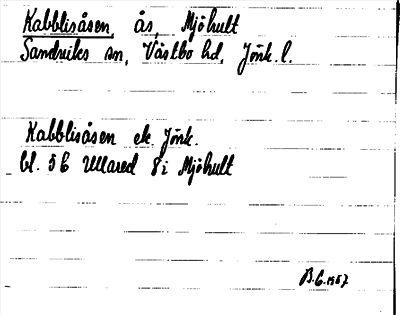 Kabblisåsen, ås, Mjöhult
Sandviks sn, Västbo hd, Jönk. l.
Kabblisåsen ek. Jönk.
bl. 5C Ullared 8i Mjöhult
B.C. 1957